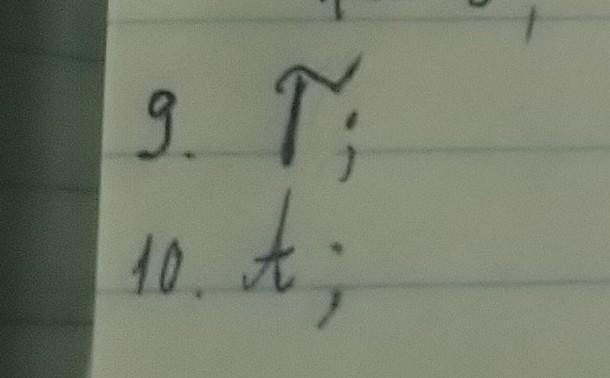 9. Г;
10. А;